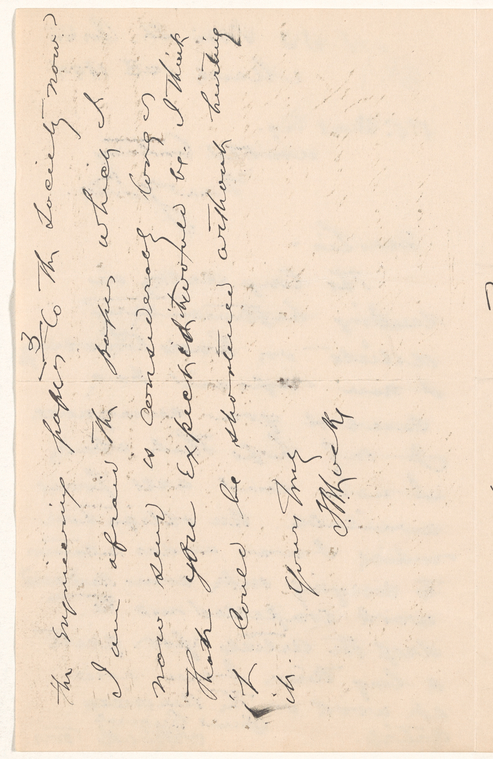 3
the Engineering papers to the Society now
I am afraid the paper which I
now send is considerably longer
than you expected it would be. I think
it could be shortened without hurting
it.
Yours truly